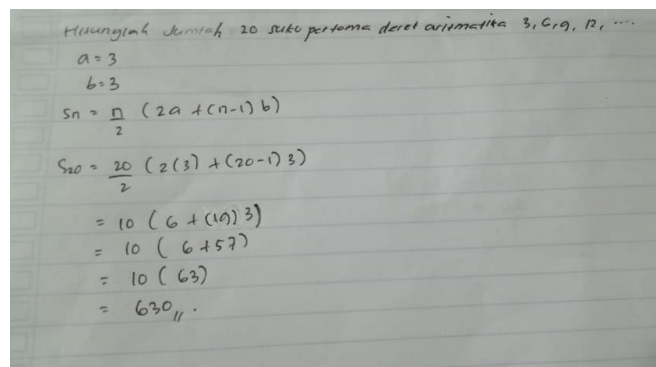 Hitunglah Jumlah 20 suku pertama deret aritmatika 3, 6, 9, 12, ....
a = 3
b = 3
Sn = n/2 (2a + (n-1) b)
S20 = 20/2 (2(3) + (20-1) 3)
= 10 (6 + (19) 3)
= 10 (6 + 57)
= 10 (63)
= 630 //.